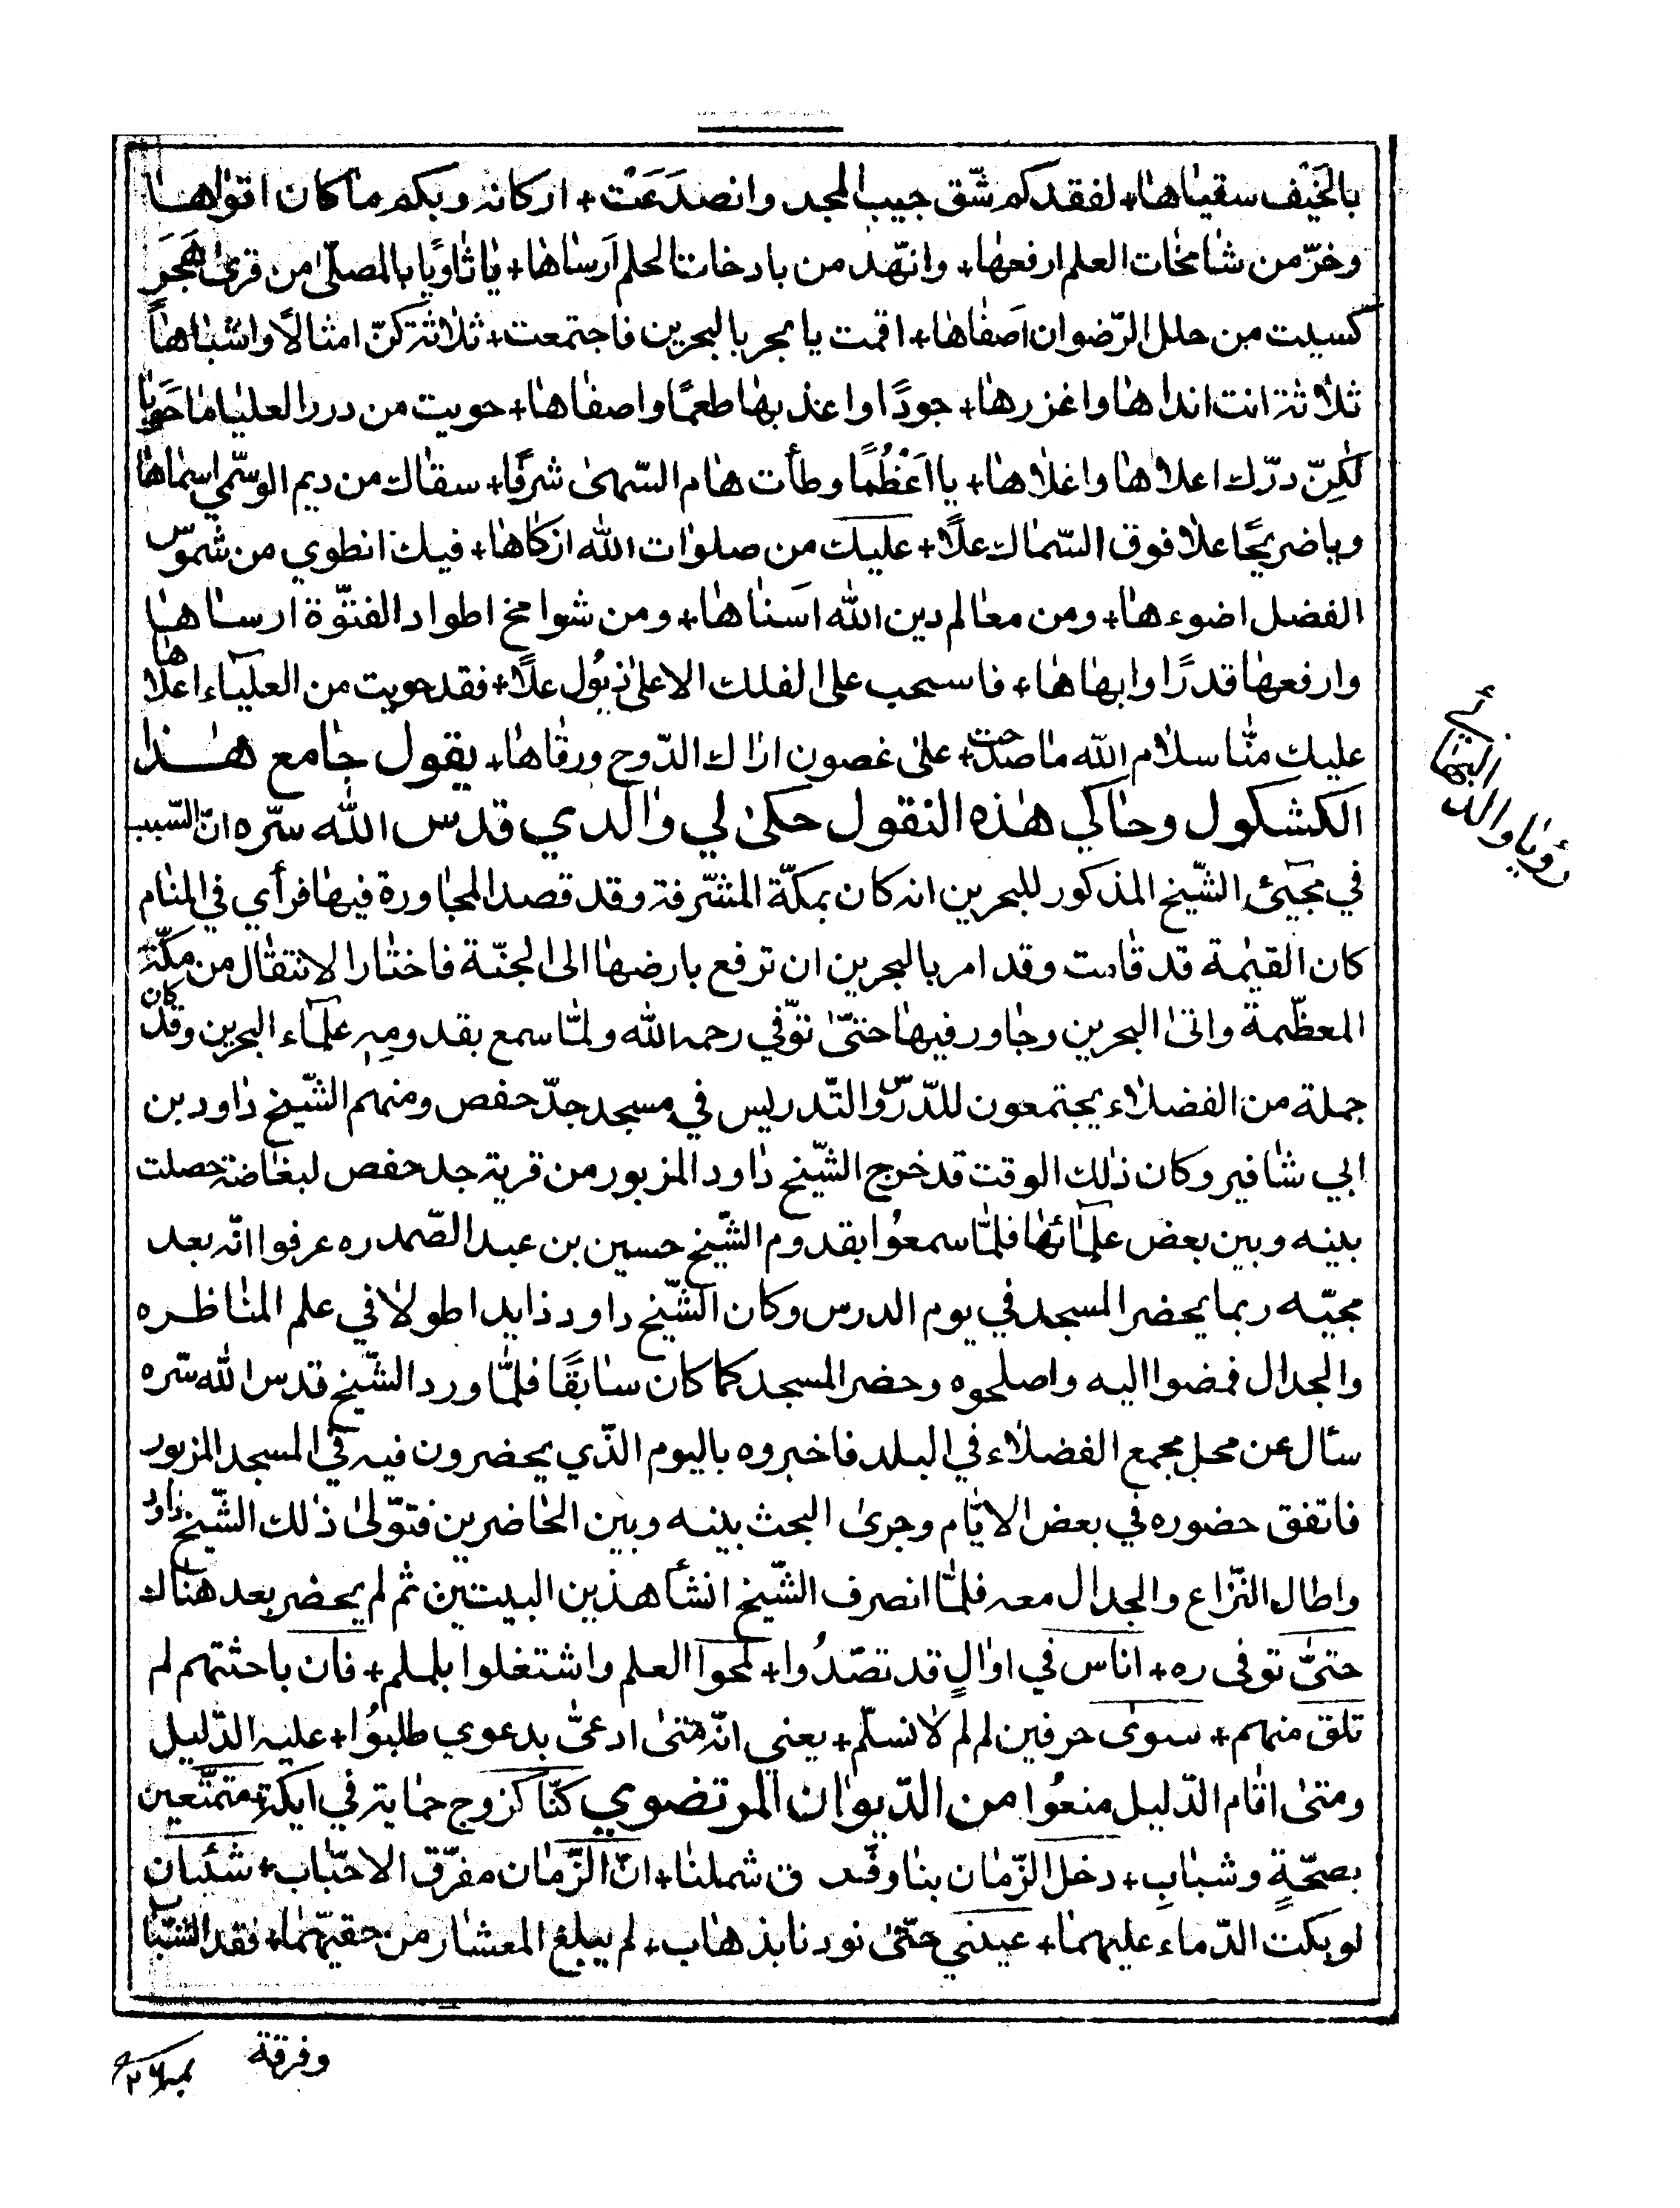 بالخَيْف سقياها+ لفقدكم شقّ جيب المجد وانصدَعَت+ اركانه وبكم ما كان اقواها
وخرّ من شامخات العلم ارفعها+ وانهّد من باذخات الحلم اَرساها+ يا ثاويًا بالمصلّى من قرى هَجَرَ
كسيت من حلل الرّضوان اَصفاها+ اقمت يا بحر بالبحرين فاجتمعت+ ثلاثة كنّ امثالًا واشباهاً
ثلاثة انت انداها واغزرها+ جودًا واعذبها طعمًا واصفاها+ حويت من درر العليا ما حَوَيا
لٰكِنّ درّك اعلاها واغلاها+ يا اَعْظُمًا وطأت هام السّهى شرفًا+ سقاك من ديم الوسّمي اسماها
ويا ضريحًا علا فوق السّماك عَلًا+ عليك من صلوات الله ازكاها+ فيك انطوي من شموس
الفضل اضوءها+ ومن معالم دين الله اَسناها+ ومن شوامخ اطواد الفتوّة ارساها
وارفعها قدرًا وابهاها+ فاسحب على الفلك الاعلى ذيُول علًا+ فقد حويت من العلياء اعلاها
عليك منّا سلام الله ما صدحت+ على غصون اراك الدّوح ورقاها+ يقول جامع هٰذا
الكشكول وحاكي هٰذه النقول حكى لي والدي قدس الله سرّه انّ السّبب
في مجيئ الشّيخ المذكور للبحرين انه كان بمكّة المشرّفة وقد قصد المجاورة فيها فرأي في المنام
كان القيٰمة قد قامت وقد امر بالبحرين ان ترفع بارضها الى الجنّة فاختار الانتقال من مكّة
المعظّمة واتى البحرين وجاور فيها حتّى توّفي رحمه الله ولمّا سمع بقدومه علمآء البحرين وقد كان
جملة من الفضلاء يجتمعون للدّرس والتّدريس في مسجد جدّ حفص ومنهم الشّيخ داود بن
ابي شافير وكان ذلك الوقت قد خرج الشّيخ داود المزبور من قرية جد حفص لبغاضة حصلت
بينه وبين بعض علمآئها فلمّا سمعُوا بقدوم الشّيخ حسين بن عبد الصّمد ره عرفوا انّه بعد
مجيّه ربما يحضر المسجد في يوم الدرس وكان الشّيخ داود ذا يد اطولا في علم المناظره
والجدال فمضوا اليه واصلحوه وحضر المسجد كما كان سابقًا فلمّا ورد الشّيخ قدس الله سّره
سأل عن محل مجمع الفضلاء في البلد فاخبروه باليوم الذّي يحضرون فيه في المسجد المزبور
فاتفق حضوره في بعض الايّام وجرى البحث بينه وبين الحاضرين فتوّلى ذلك الشّيخ داود
واطال النّزاع والجدال معه فلمّا انصرف الشّيخ انشأ هذين البيتين ثم لم يحضر بعد هناك
حتىّ توفى ره+ اناس في اوالٍ قد تصّدُوا+ لمحوا العلم واشتغلوا بلملم+ فان باحثتهم لم
تلق منهم+ سوى حرفين لم لم لا نسلّم+ يعني انّه متى ادعىّ بدعوي طلبوُا+ عليه الدّليل
ومتى اقام الدّليل منعُوا من الدّيوان المرتضوي كنّا كزوج حمامة في ايكة+ متمتّعين
بصحّةٍ وشبابِ+ دخل الزّمان بنا وفّر ق شملنا+ انّ الزّمان مفرّق الاحبّاب+ شئيان
لو بكت الدّماء عليهما+ عيني حتّى نود نا بذهاب+ لم يبلغ المعشار من حقيّهما+ فقد الشّباب
وفرقة
رؤيا والد
البهائي